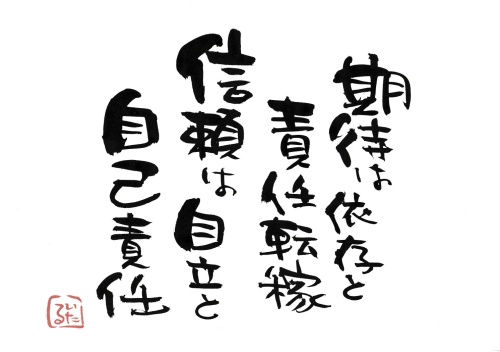 期待は依存と
責任転稼
信頼は自立と
自己責任
いた
る